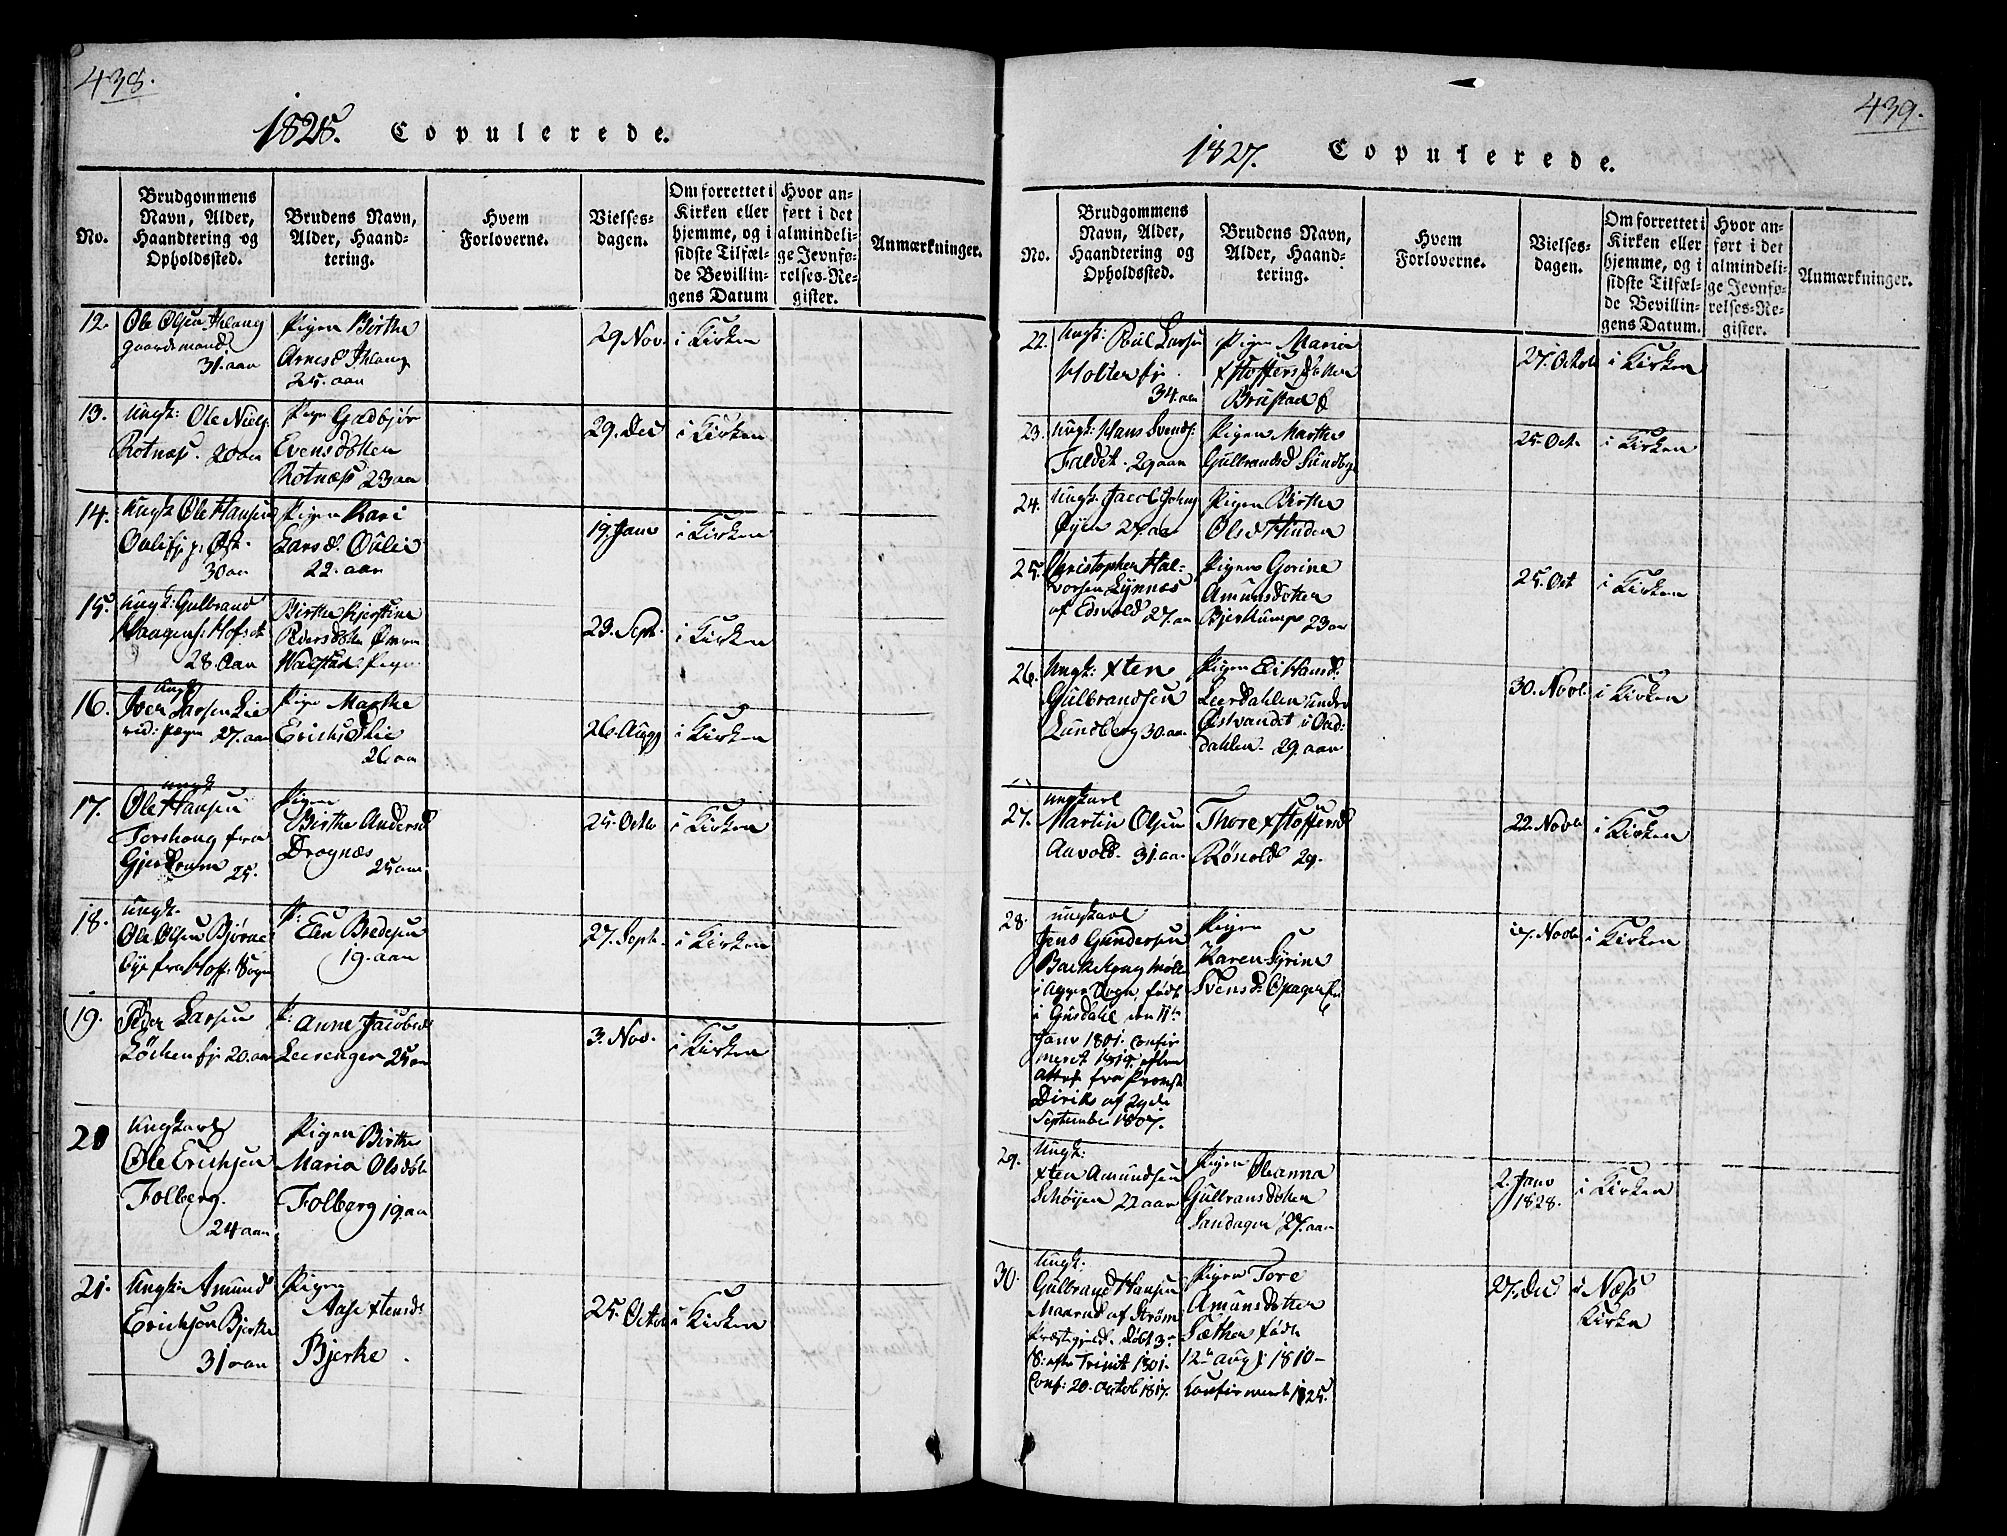 438.
1828. Copulerede.
No.
Brudgommens
Navn, Alder,
Haandtering og
Opholdssted.
Brudens Navn,
Alder, Haand-
tering.
Hvem
Forloverne.
Vielses-
dagen.
Om forrettet i
Kirken eller
hjemme, og i
sidste Tilfæl-
de Bevillin-
gens Datum
Hvor an-
ført i det
almindeli-
ge Jevnfø-
relses-Re-
gister.
Anmærkninger.
12.
Ole Olsen Ihlang
gaardmand
31. aar
Pigen Birthe
Arnesd Ihlang
25. aar
29 Nov.
i Kirken
13.
Ungk: Ole Niels
Rotnæss. 20 aar
Pigen
Evensdotter
Rotnæss 23 aar
29. Dec
i Kirken
14.
Ungk Ole Hansen
30 aar
Pigen Kari
Larsd. Oulie
22. aar
19. Janv
i Kirken
15.
Ungk: Gulbrand
Haagens: Hofset
28. Aar
Birthe Kjerstine
Pedersdotter
Pige
23. Sept.
i Kirken
16.
Ungk
Iver Larsen Lie
27. aar
Pige Marthe
Erichsd Lie
26 aar
26. Augg
i Kirken
17.
Ungk
Ole Hansen
Torshoug fra
Gjerdrum 25.
Pigen
Birthe Andersd
Drognæs
25 aar
25. Octb
i Kirken
18.
Ungk.
Ole Olsen Bjørne
bye fra Hoff: Sogn
P:
Elen Bredesen
19. aar
27. Septb.
i Kirken
19.
Peder Larsen
Løchen ej 20. aar
P:
Anne Jacobsd
Leirenger 25 aar
3. Nov.
i Kirken
20
Ungkarl
Ole Erichsen
Folberg.
24 aar
Pigen Birthe
Maria Olsdotr
Folberg 19. aar
21.
Ungk. Amund
Erichsen Bjerke
31 aar
Pigen
Aase Xtensd:
Bjerke.
25. Octob
i Kirken
439.
1827. Copulerede.
No.
Brudgommens
Navn, Alder,
Haandtering og
Opholdssted.
Brudens Navn,
Alder, Haand-
tering.
Hvem
Forloverne.
Vielses-
dagen.
Om forrettet i
Kirken eller
hjemme, og i
sidste Tilfæl-
de Bevillin-
gens Datum.
Hvor an-
ført i det
almindeli-
ge Jevnfø-
relses-Re-
gister.
Anmærkninger.
22.
Ungk: Poul Larsen
Holter ej.
34. aar
Pigen Maria
Xstoffersdotter
Brustad
27. Octob
i Kirken
23.
Ungk: Hans Svends:
Faldet. 29 aar
Pigen Marthe
Gulbrandsd Sundbye
25 Oct.
i Kirken
24.
Ungk. Jacob Johns
Øyen 27. aar
Pigen Birthe
Olsd Hinden
25.
Christopher Hal-
vorsen Lynnæs
af Edsvold 27. aar
Pigen Gorine
Amunsdotter
23 aar
25. Oct
i Kirken
26.
Ungk: Xten
Gulbrandsen
Lundberg 30. aar
Pigen Eli Hansd.
Leerdahlen under
Østvandet i Oud-
dahlen. 29. aar
30. Novb.
i Kirken
27.
Ungkarl
Martin Olsen
Aavold. 31. aar
Thore Xstoffersd
Rønold 29.
22. Novb
i Kirken
28.
Ungkarl
Jens Gundersen
Backehoug
i Agger Sogn, født
i Gusdahl den 11te
Janv 1801. Confir
meret 1819 efter
Attest fra Provst
Diriks af 29de
September 1807.
Pigen
Karen Syrine
Svensd: Opager ej
17. Novb
i Kirken
29.
Ungk:
Xten Amundsen
Schøyen 22 aar
Pigen Oleanna
Gulbransdotter
Sandager 27. aar
2. Janv
1828.
i Kirken
30.
Ungk:
Gulbrand Hansen
Maarud af Strøm
Præstegjeld. Døbt 3.
18: efter Trinit 1801.
Conf: 20. Octob 1817.
Pigen Tore
Amunsdotter
Sæther født
12te Aug: 1810-
Confirmert 1825.
27. Dec
i Næss
Kirke